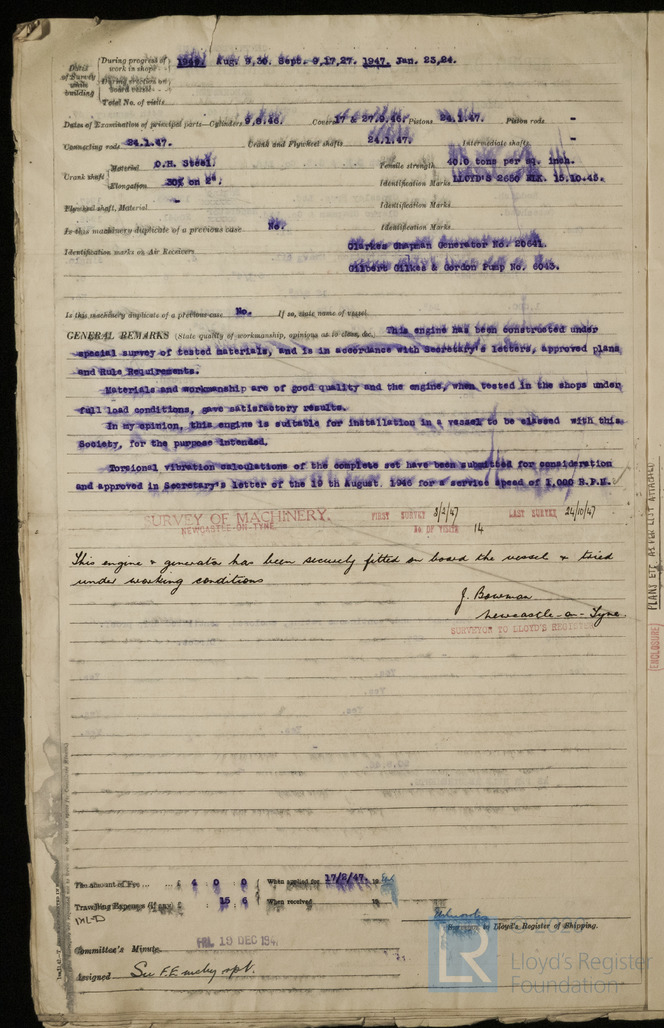 Dates of Survey while building
During progress of work in shops 1946. Aug. 9,30. Sept. 9,17,27. 1947. Jan. 23,24.
During erection on board vessel
Total No. of visits
Dates of Examination of principal parts—Cylinders 9.8.46. Covers 17 & 27.9.46. Pistons 24.1.47. Piston rods -
Connecting rods 24.1.47. Crank and Flywheel shafts 24.1.47. Intermediate shafts -
Crank shaft Material O.H. Steel. Tensile strength 40.0 tons per sq. inch.
Elongation 30% on 2". Identification Marks LLOYD'S 2650 15.10.45.
Flywheel shaft, Material - Identification Marks
Is this machinery duplicate of a previous case No. Identification Marks
Identification marks on Air Receivers Clarkes Chapman Generator No. 20641.
Gilbert Gilkes & Gordon Pump No. 6045.
Is this machinery duplicate of a previous case No. If so, state name of vessel
GENERAL REMARKS (State quality of workmanship, opinions as to class, &c. This engine has been constructed under
special survey of tested materials, and is in accordance with Secretary's letters, approved plans
and Rule Requirements.
Materials and workmanship are of good quality and the engine, when tested in the shops under
full load conditions, gave satisfactory results.
In my opinion, this engine is suitable for installation in a vessel to be classed with this
Society, for the purpose intended.
Torsional vibration calculations of the complete set have been submitted for consideration
and approved in Secretary's letter of the 19 th August, 1946 for a service speed of 1,000 R.P.M.
SURVEY OF MACHINERY. FIRST SURVEY 3/2/47 LAST SURVEY 24/10/47
NEWCASTLE-ON-TYNE No OF VISITS 14
This engine & generator has been securely fitted on board the vessel & tried
under working conditions
J. Bowman
Newcastle-on-Tyne.
SURVEYOR TO LLOYD'S REGISTER
PLANS ETC AS PER LIST ATTACHED
(ENCLOSURE)
The amount of Fee ... £ 4 0 0 When applied for 17/2/47. 19
Travelling Expenses (if any) £ 15 6 When received 19
Surveyor to Lloyd's Register of Shipping.
Committee's Minute FRI. 19 DEC 194
Assigned See F.E. mchy rpt.
© 2020
LR
Lloyd's Register
Foundation